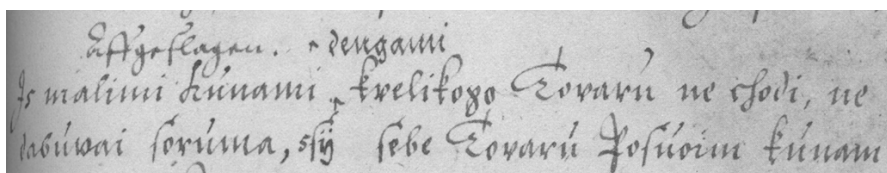 Affgeslagen. dengami
Is malimi kunami kvelikopo Tovaru ne chodi, ne
dabuwai soruma, ssÿ sebe Tovaru Posuoim kunam